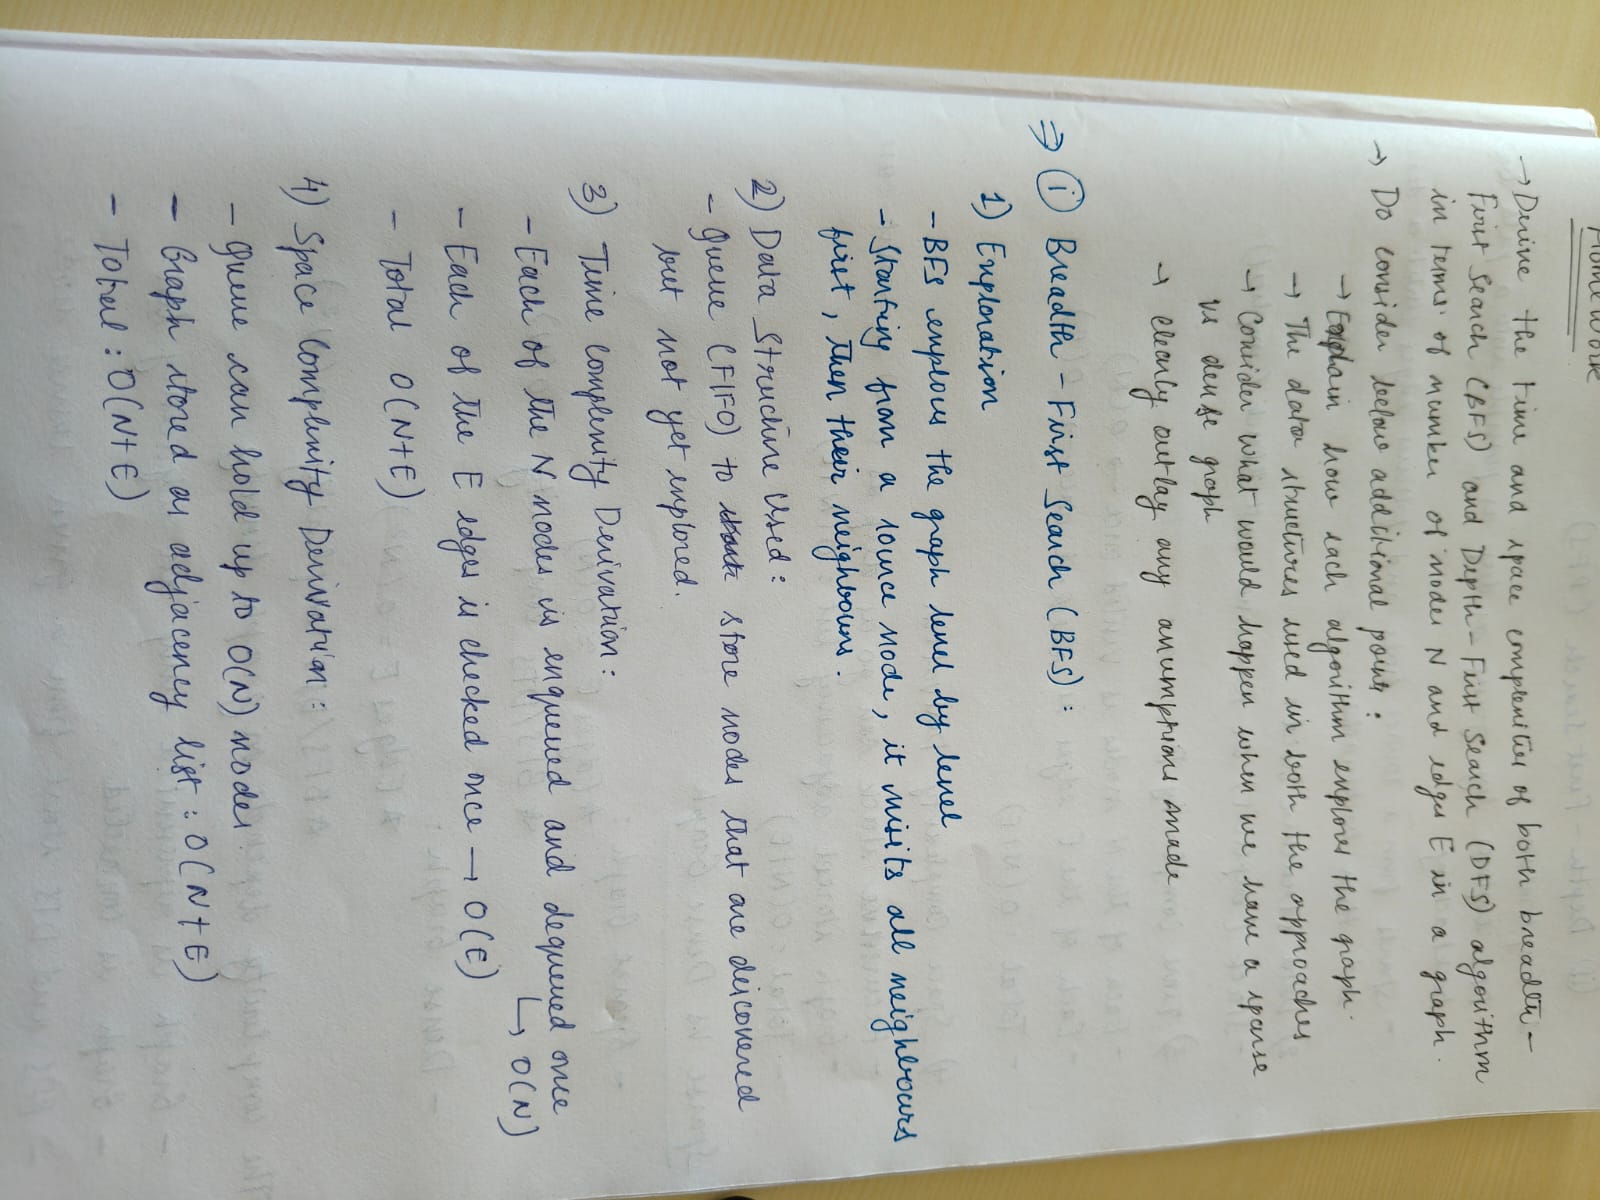 Home Work
→ Derive the time and space complexities of both breadth-
First Search (BFS) and Depth-First Search (DFS) algorithm
in terms of number of nodes N and edges E in a graph.
→ Do consider below additional points:
→ Explain how each algorithm explores the graph.
→ The data structures used in both the approaches
→ Consider what would happen when we have a sparse
vs dense graph
→ clearly outlay any assumptions made
⇒ (i) Breadth-First Search (BFS):
1) Exploration
- BFS explores the graph level by level
- Starting from a source node, it visits all neighbours
first, then their neighbours.
2) Data Structure Used:
- Queue (FIFO) to store nodes that are discovered
but not yet explored.
3) Time Complexity Derivation:
- Each of the N nodes is enqueued and dequeued once
↳ O(N)
- Each of the E edges is checked once → O(E)
- Total O(N+E)
4) Space Complexity Derivation:
- Queue can hold up to O(N) nodes
- Graph stored as adjacency list: O(N+E)
- Total: O(N+E)